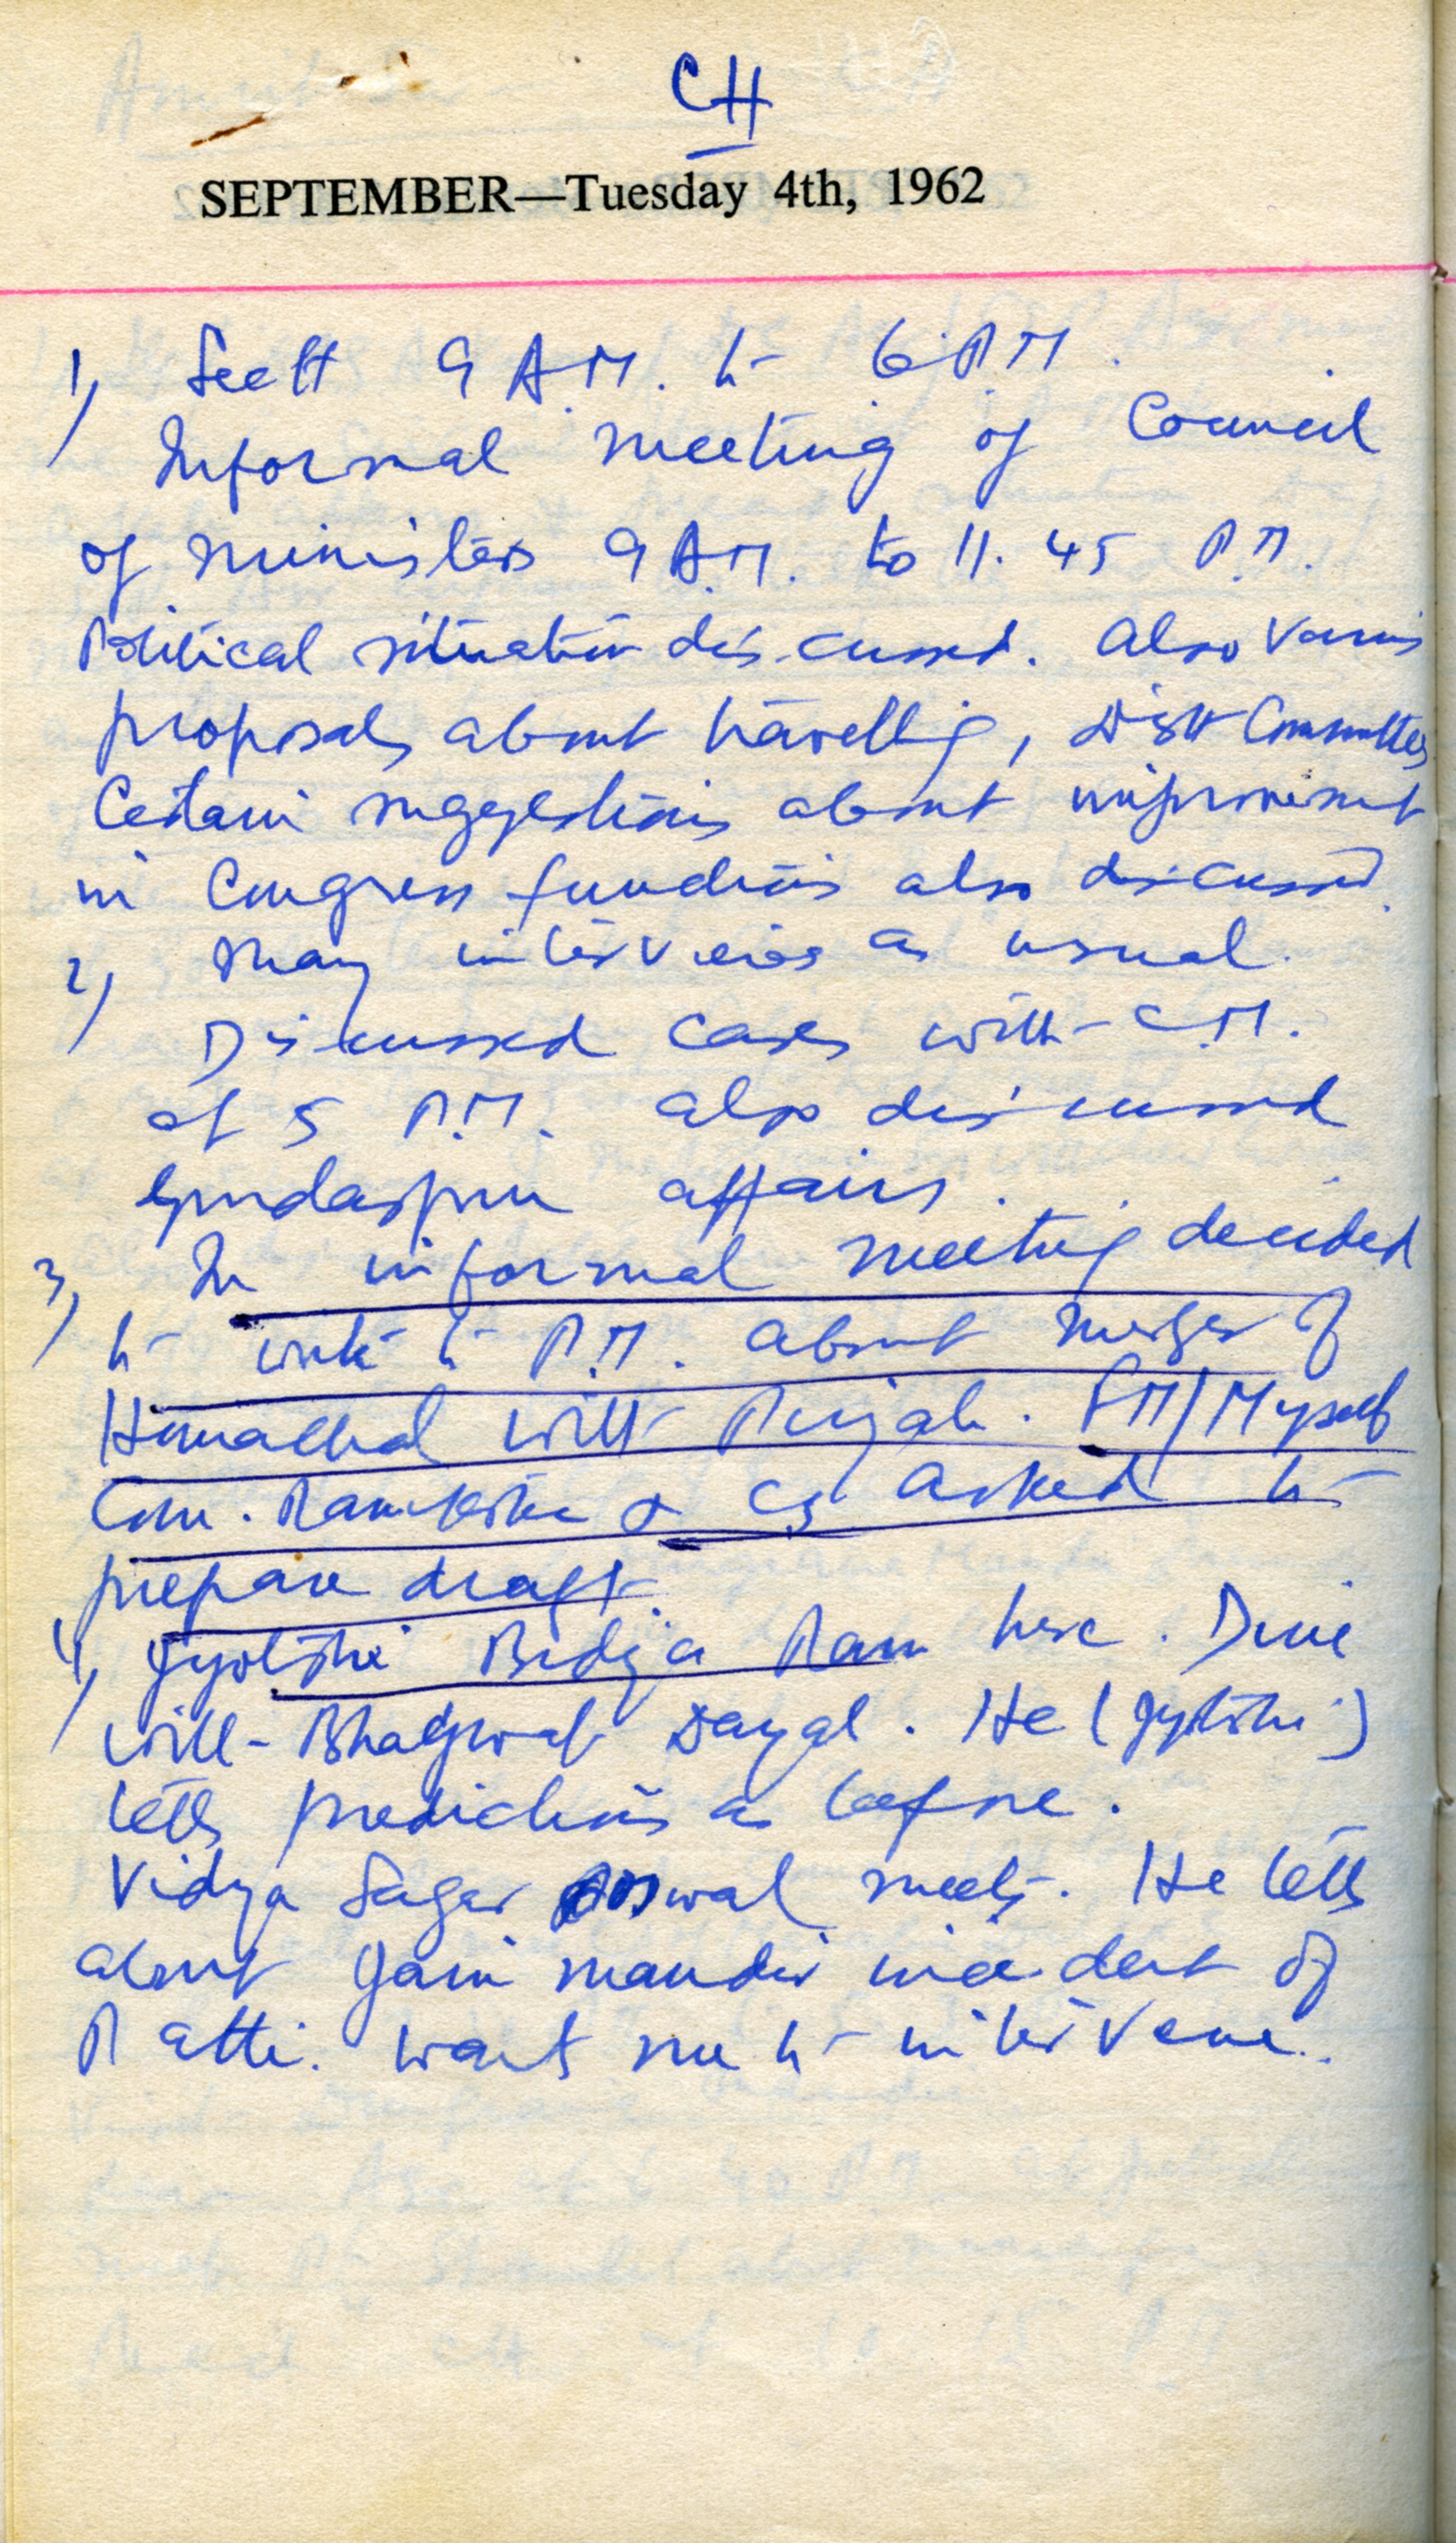 CH
SEPTEMBER—Tuesday 4th, 1962
1) Sectt 9 A.M. to 6 P.M.
Informal meeting of Council
of ministers 9 A.M. to 11.45 P.M.
Political situation discussed. Also various
proposals about travelling, Distt Committees
Certain suggestions about improvement
in Congress functions also discussed.
2) Many interviews as usual.
Discussed cases with C.M.
at 5 P.M. also discussed
Gurdaspur affairs.
3) In informal meeting decided
to write to P.M. about merger of
Himachal with Punjab. FM/Myself
Com. & CS asked to
prepare draft.
4) Jyotshi Bidya Ram here. Dine
with Bhagwat Dayal. He (Jyotshi)
tells predictions as before.
Vidya Sagar Oswal meets. He tells
about Jain mandir incident of
Patti. Wants me to intervene.